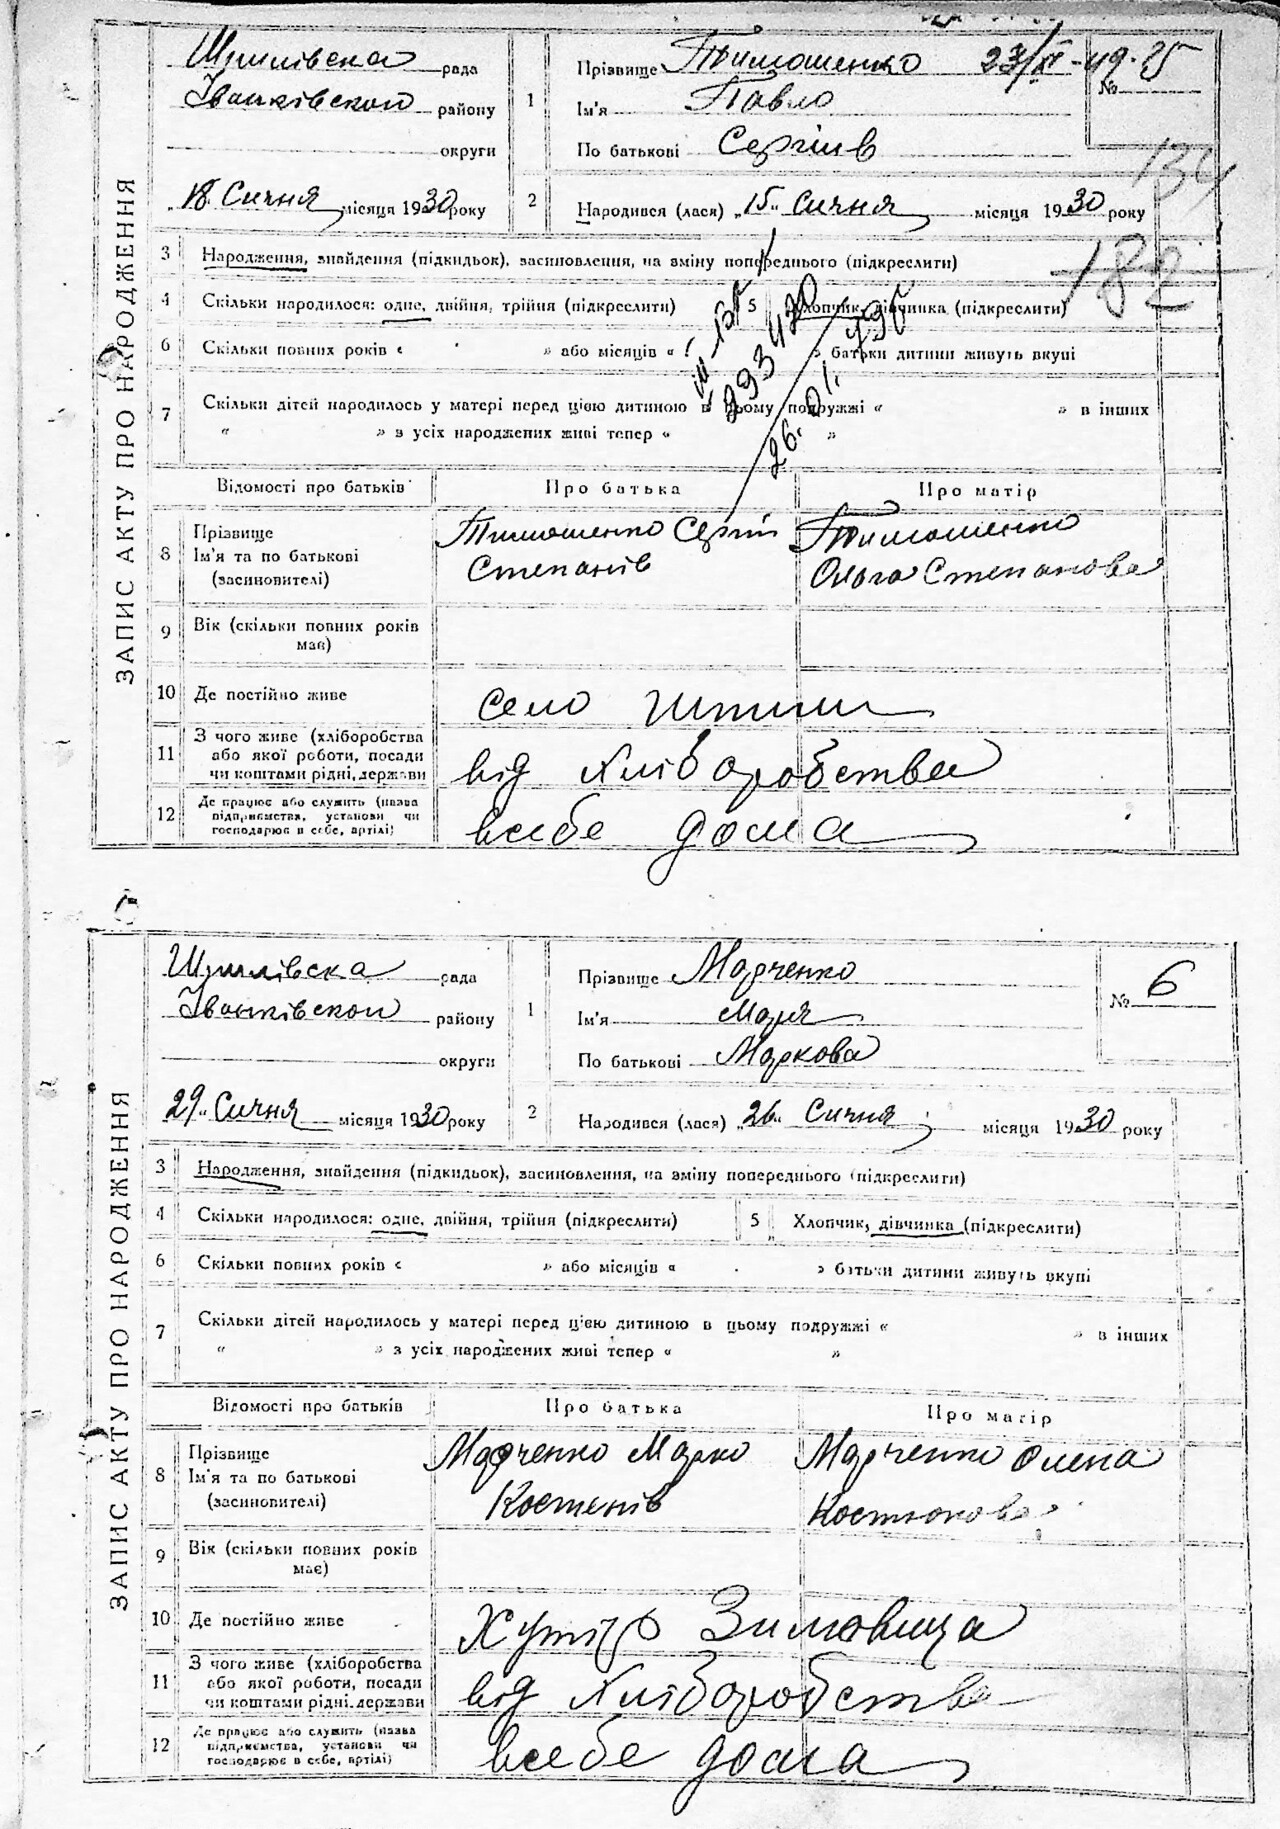 Шпилівська рада
Іванківской району
округи
„18„ Сичня місяця 1930 року
1
Прізвище Тимошенко 23/XI-49.
Ім'я Павло
По батькові Сергіїв
№
134
182
2
Народився (лася) „15„ Сичня місяця 1930 року
ЗАПИС АКТУ ПРО НАРОДЖЕННЯ
3 Народження, знайдення (підкидьок), засиновлення, на зміну попереднього (підкреслити)
4 Скільки народилося: одне, двійня, трійня (підкреслити) 5 Хлопчик, дівчинка (підкреслити)
6 Скільки повних років « » або місяців « » батьки дитини живуть вкупі
7 Скільки дітей народилось у матері перед цією дитиною в цьому подружжі « » в інших
« » з усіх народжених живі тепер « »
293420
Відомості про батьків Про батька Про матір
8 Прізвище
Ім'я та по батькові
(засиновителі)
Тимошенко Сергій
Степанів
Тимошенко
Ольга Степанова
9 Вік (скільки повних років
має)
10 Де постійно живе село Шпили
11 З чого живе (хліборобства
або якої роботи, посади
чи коштами рідні, держави
від хліборобства
12 Де працює або служить (назва
підприємства, установи чи
господарює в себе, артілі)
всебе дома
Шпилівска рада
Іванківской району
округи
29„ Сичня місяця 1930 року
1
Прізвище Марченко
Ім'я Марія
По батькові Маркова
№ 6
2
Народився (лася) „26„ Сичня місяця 1930 року
ЗАПИС АКТУ ПРО НАРОДЖЕННЯ
3 Народження, знайдення (підкидьок), засиновлення, на зміну попереднього (підкреслити)
4 Скільки народилося: одне, двійня, трійня (підкреслити) 5 Хлопчик, дівчинка (підкреслити)
6 Скільки повних років « » або місяців « » батьки дитини живуть вкупі
7 Скільки дітей народилось у матері перед цією дитиною в цьому подружжі « » в інших
« » з усіх народжених живі тепер « »
Відомості про батьків Про батька Про матір
8 Прізвище
Ім'я та по батькові
(засиновителі)
Марченко Марко
Костенів
Марченко Олена
Костюкова
9 Вік (скільки повних років
має)
10 Де постійно живе Хутір Зимовища
11 З чого живе (хліборобства
або якої роботи, посади
чи коштами рідні, держави
від хліборобства
12 Де працює або служить (назва
підприємства, установи чи
господарює в себе, артілі)
всебе дома